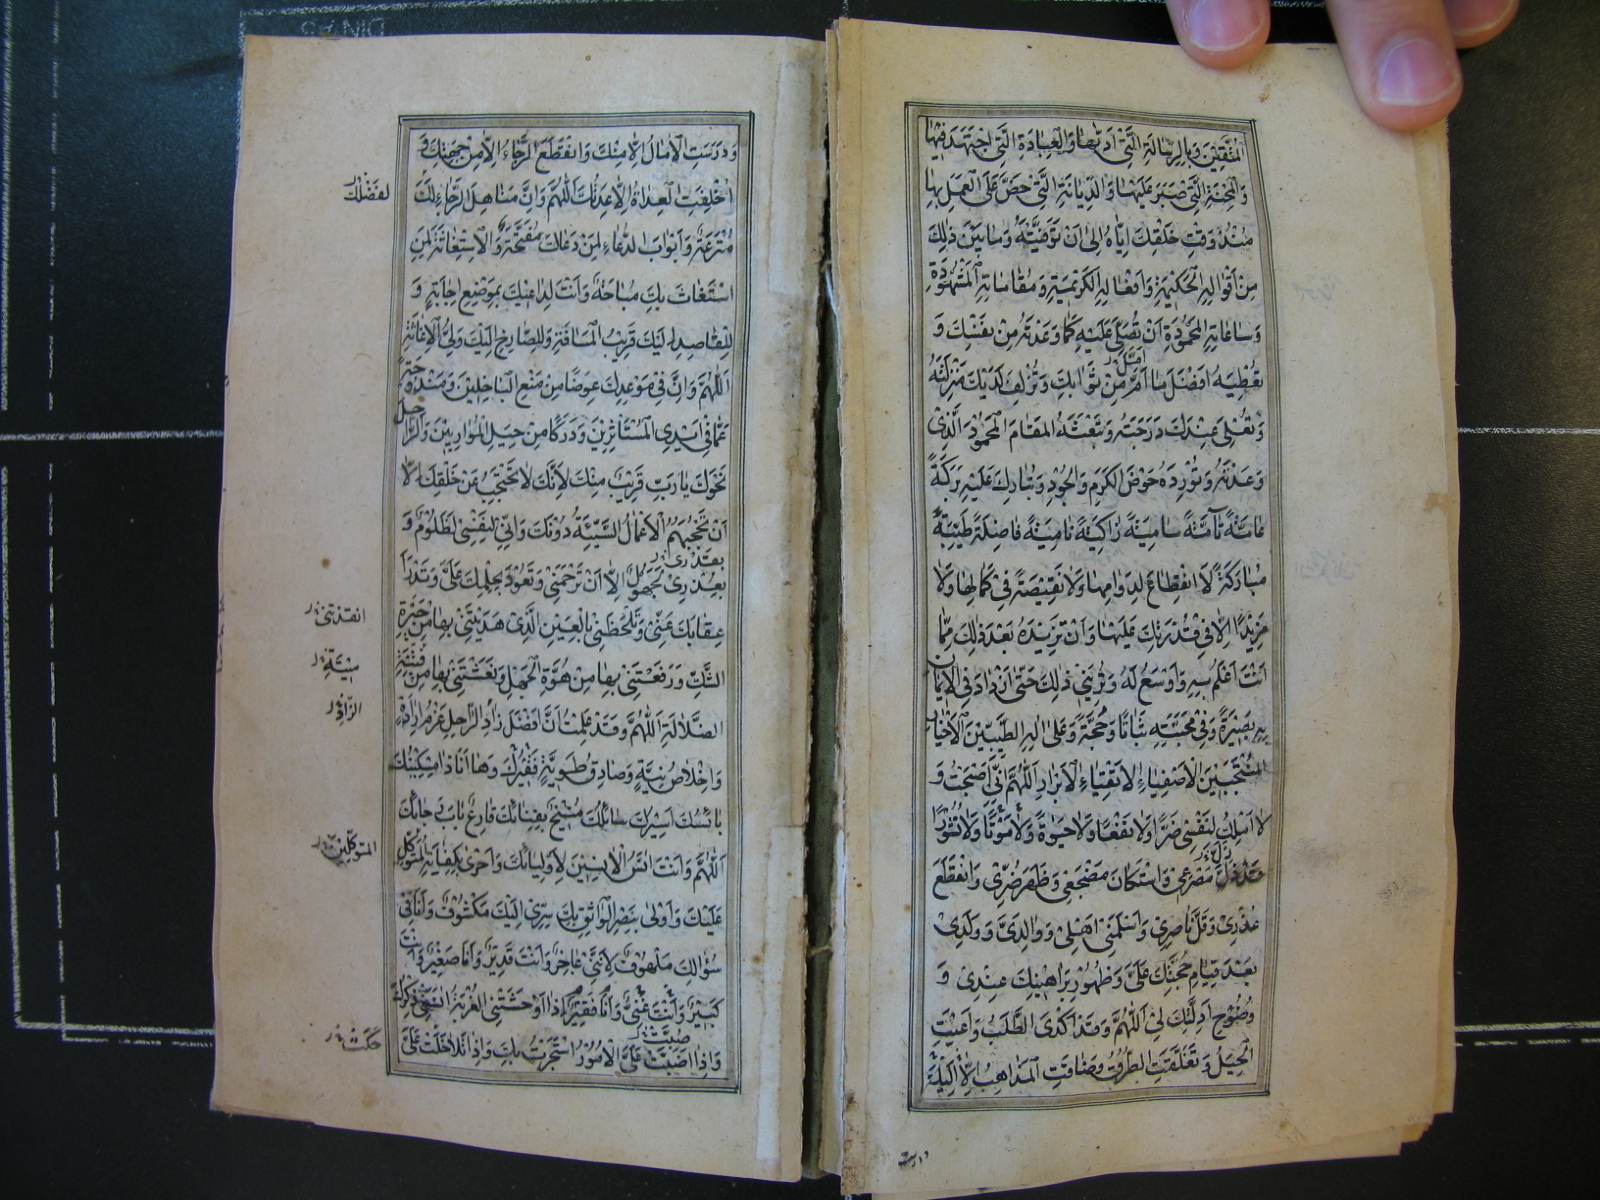 المتقين وبالرسالة التي أديها والعبادة التي اجتهد فيها
والمحنة التي صبر عليها والديانة التي حض على العمل بها
منذ وقت خلقك إياه إلى أن توفيته وما بين ذلك
من أقواله الحكيمة وأفعاله الكريمة ومقاماته المشهودة
وساعاته المحمودة أن تصلي عليه كما وعدته من نفسك و
تعطيه أفضل ما أمل من ثوابك وتزلف لديك منزلته
وتعلي عندك درجته وتبعثه المقام المحمود الذي
وعدته وتورده حوض الكرم والجود وتبارك عليه بركة
عامة تامة سامية زاكية نامية فاضلة طيبة
مباركة لا انقطاع لدوامها ولا نقيصة في كمالها ولا
مزيدا إلا في قدرتك عليها وأن تزيده بعد ذلك مما
أنت أعلم به وأوسع له وتريني ذلك حتى أزداد في الإيمان
به بصيرة وفي محبته ثباتا وحجة وعلى آله الطيبين الأخيار
المنتجبين الأصفياء الأتقياء الأبرار اللهم إني أصبحت و
لا أملك لنفسي ضرا ولا نفعا ولا حيوة ولا موتا ولا نشورا
وقد ذل مصرعي واستكان مضجعي وظهر ضري وانقطع
عذري وقل ناصري وأسلمني أهلي ووالدي وولدي
بعد قيام حجتك علي وظهور براهينك عندي و
وضوح أدلتك لي اللهم وقد أكدى الطلب وأعيت
الحيل وتغلقت الطرق وضاقت المذاهب إلا إليك
ودرست
ودرست الآمال إلا منك وانقطع الرجاء إلا من جهتك و
أخلفت العداة إلا عدتك اللهم وإن مناهل الرجاء لك
لفضلك
مترعة وأبواب الدعاء لمن دعاك مفتحة والاستغاثة لمن
استغاث بك مباحة وأنت لداعيك بموضع إجابة و
للقاصد إليك قريب المسافة وللصارخ إليك ولي الإغاثة
اللهم وإن في موعدك عوضا من منع الباخلين ومندوحة
عما في أيدي المستأثرين ودركا من حيل الموازين والراحل
نحوك يا رب قريب منك لأنك لا تحتجب عن خلقك إلا
أن تحجبهم الأعمال السيئة دونك وإني لنفسي لظلوم و
بقدري
بعذري لجهول إلا أن ترحمني وتعود بحلمك علي وتدرأ
عقابك عني وتلحظني بالعين الذي هديتني بها من حيرة
انقذتني
الشك ورفعتني بها من هوة الجهل ونعشتني بها من فتنة
ميتة
الضلالة اللهم وقد علمت أن أفضل زاد الراحل عزم إرادة
وإخلاص نية وصادق طوية فقيرك وها أنا ذا مسكينك
بائسك أسيرك سائلك منيخ بفنائك قارع باب رجائك
اللهم وأنت آنس الآنسين لأوليائك وأحرى بكفاية المتوكل
المتوكلين
عليك وأولى بنصر الواثق بك سري إليك مكشوف وأنا في
سؤالك ملهوف لأنني عاجز وأنت قدير وأنا صغير وأنت
كبير وأنت غني وأنا فقير إذا أوحشتني الغربة آنسني ذكرك
صبت
وإذا أصبت علي الأمور استجرت بك وإذا تلاحكت علي